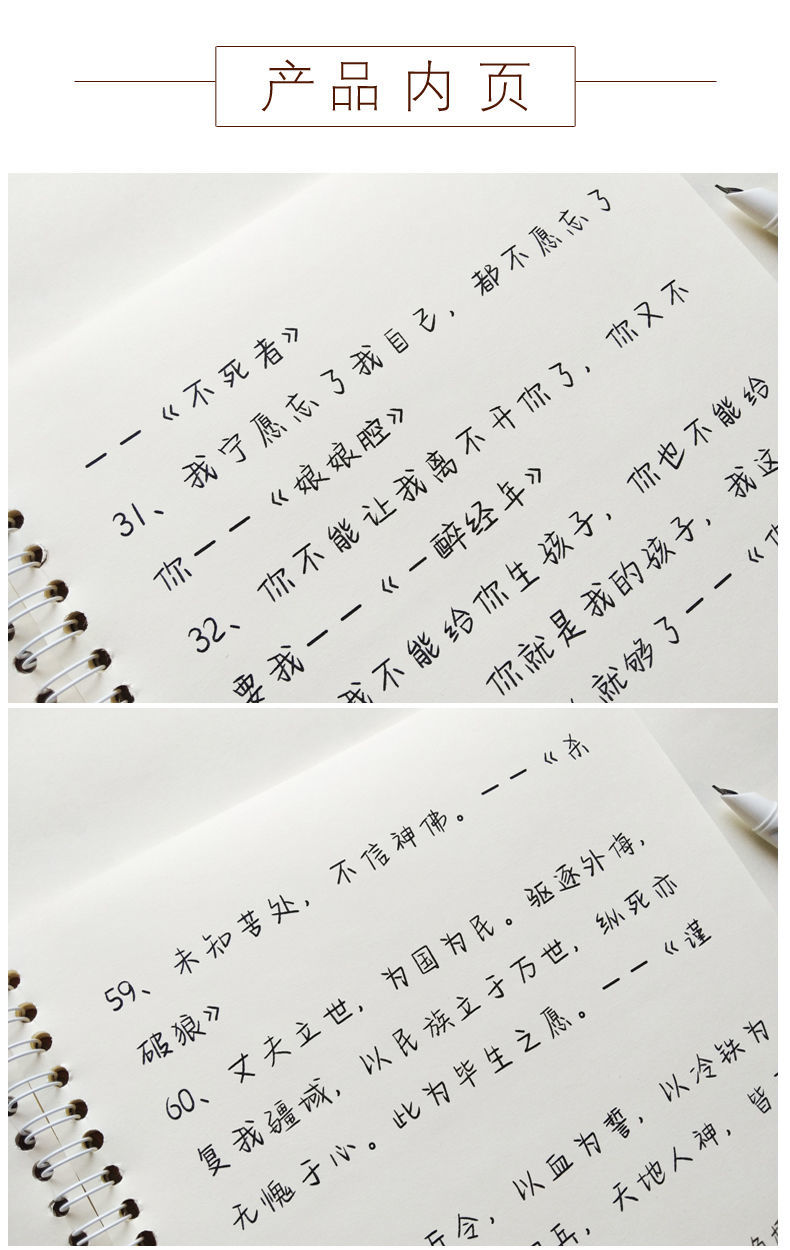 产品内页
——《不死者》
31、我宁愿忘了我自己，都不愿忘了
你——《娘娘腔》
32、你不能让我离不开你了，你又不
要我——《一醉经年》
我不能给你生孩子，你也不能给
你就是我的孩子，我这
就够了——《你
59、未知苦处，不信神佛。——《杀
破狼》
60、丈夫立世，为国为民。驱逐外侮，
复我疆域，以民族立于万世，纵死亦
无愧于心。此为毕生之愿。——《谨
以血为誓，以冷铁为
令，天地人神，皆